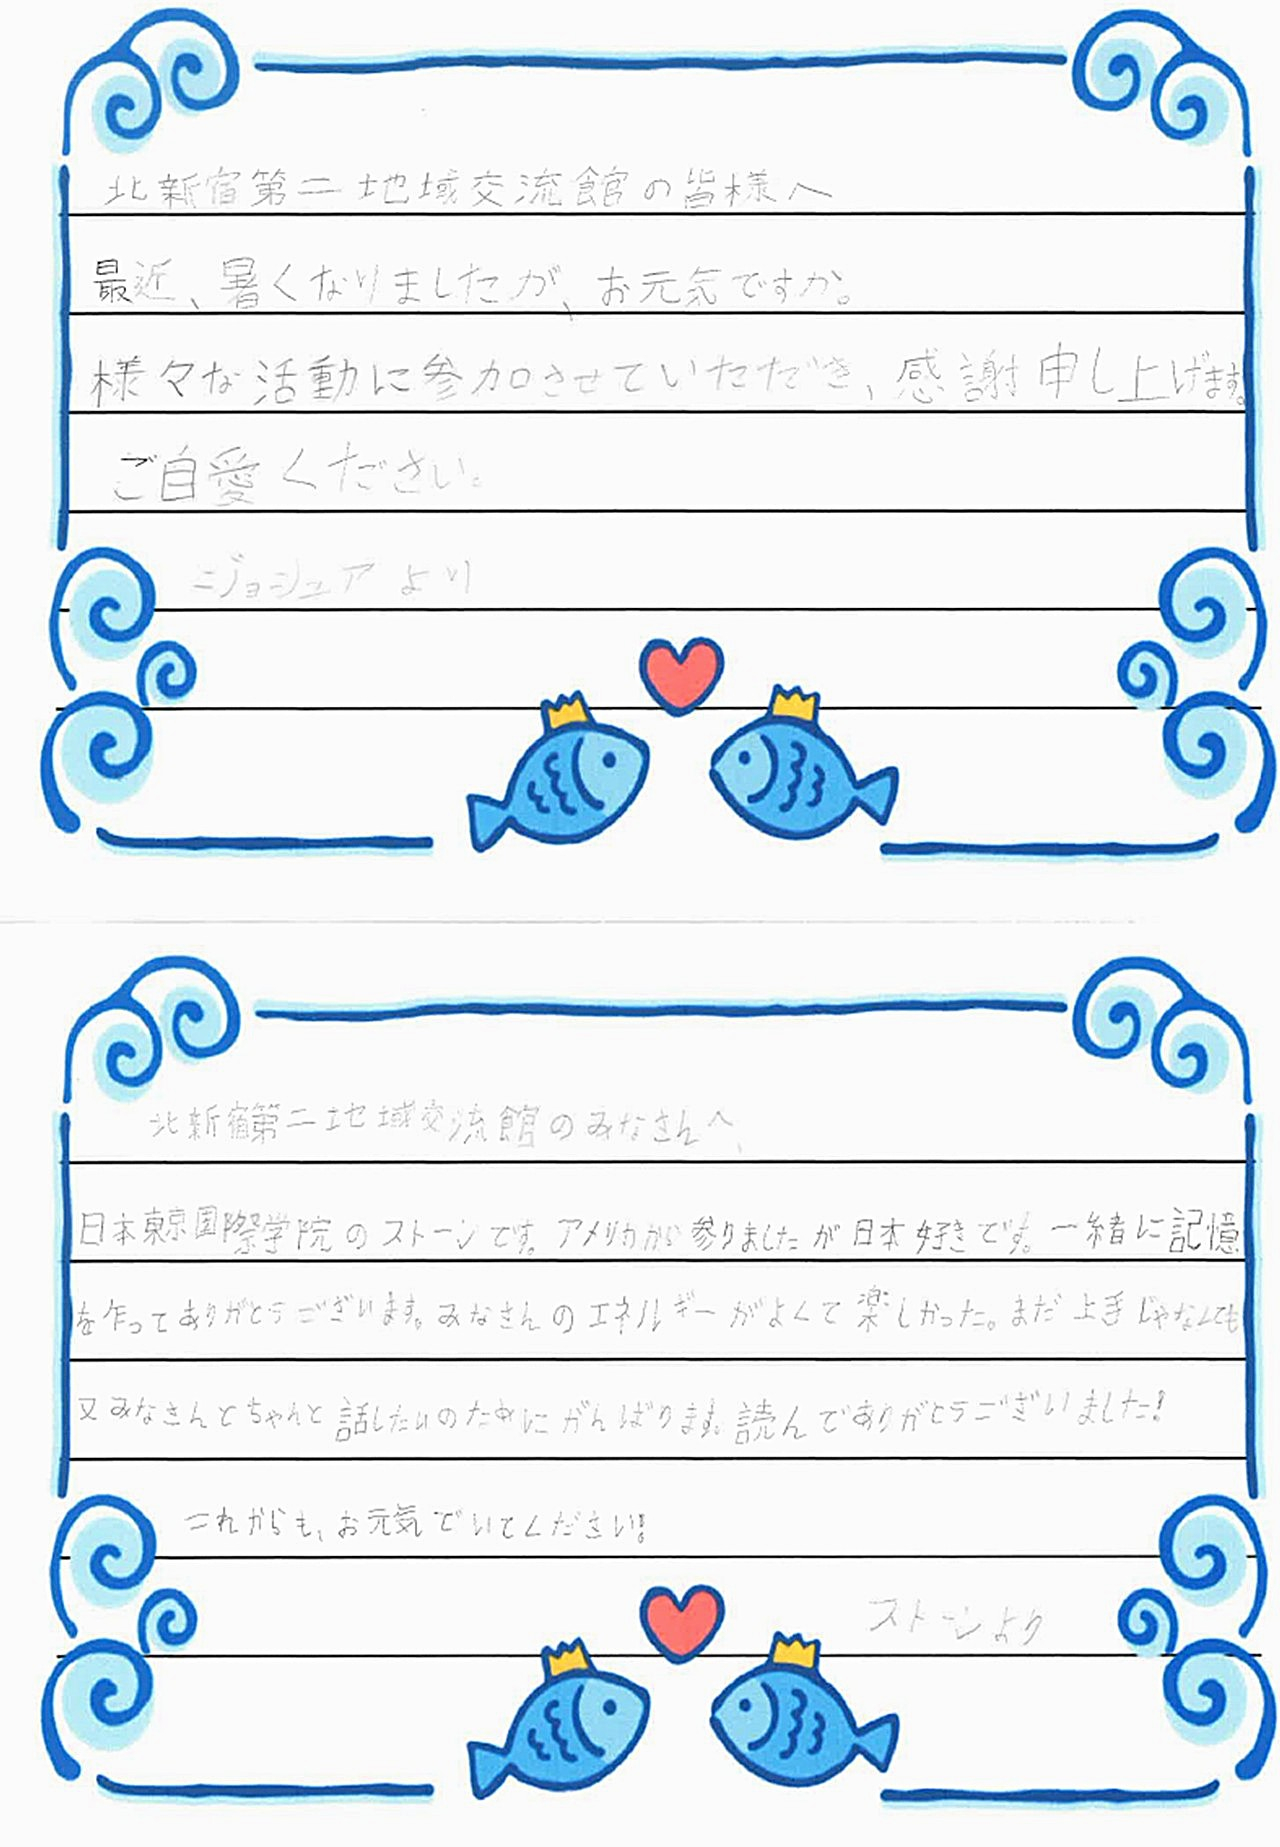 北新宿第二地域交流館の皆様へ
最近、暑くなりましたが、お元気ですか。
様々な活動に参加させていただき、感謝申し上げます。
ご自愛ください。
ジョシュアより
北新宿第二地域交流館のみなさんへ、
日本東京国際学院のストーンです。アメリカから参りましたが日本好きです。一緒に記憶
を作ってありがとうございます。みなさんのエネルギーがよくて楽しかった。まだ上手じゃなくても
又みなさんとちゃんと話したいのためにがんばります。読んでありがとうございました!
これからも、お元気でいてください!
ストーンより